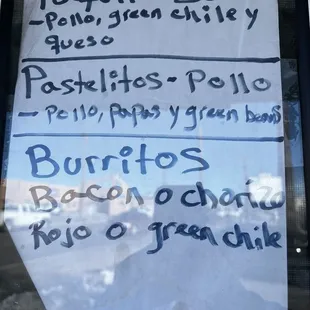 -Pollo, green chile y
queso
Pastelitos - Pollo
- Pollo, papas y green beans
Burritos
Bacon o chorizo
Rojo o green chile